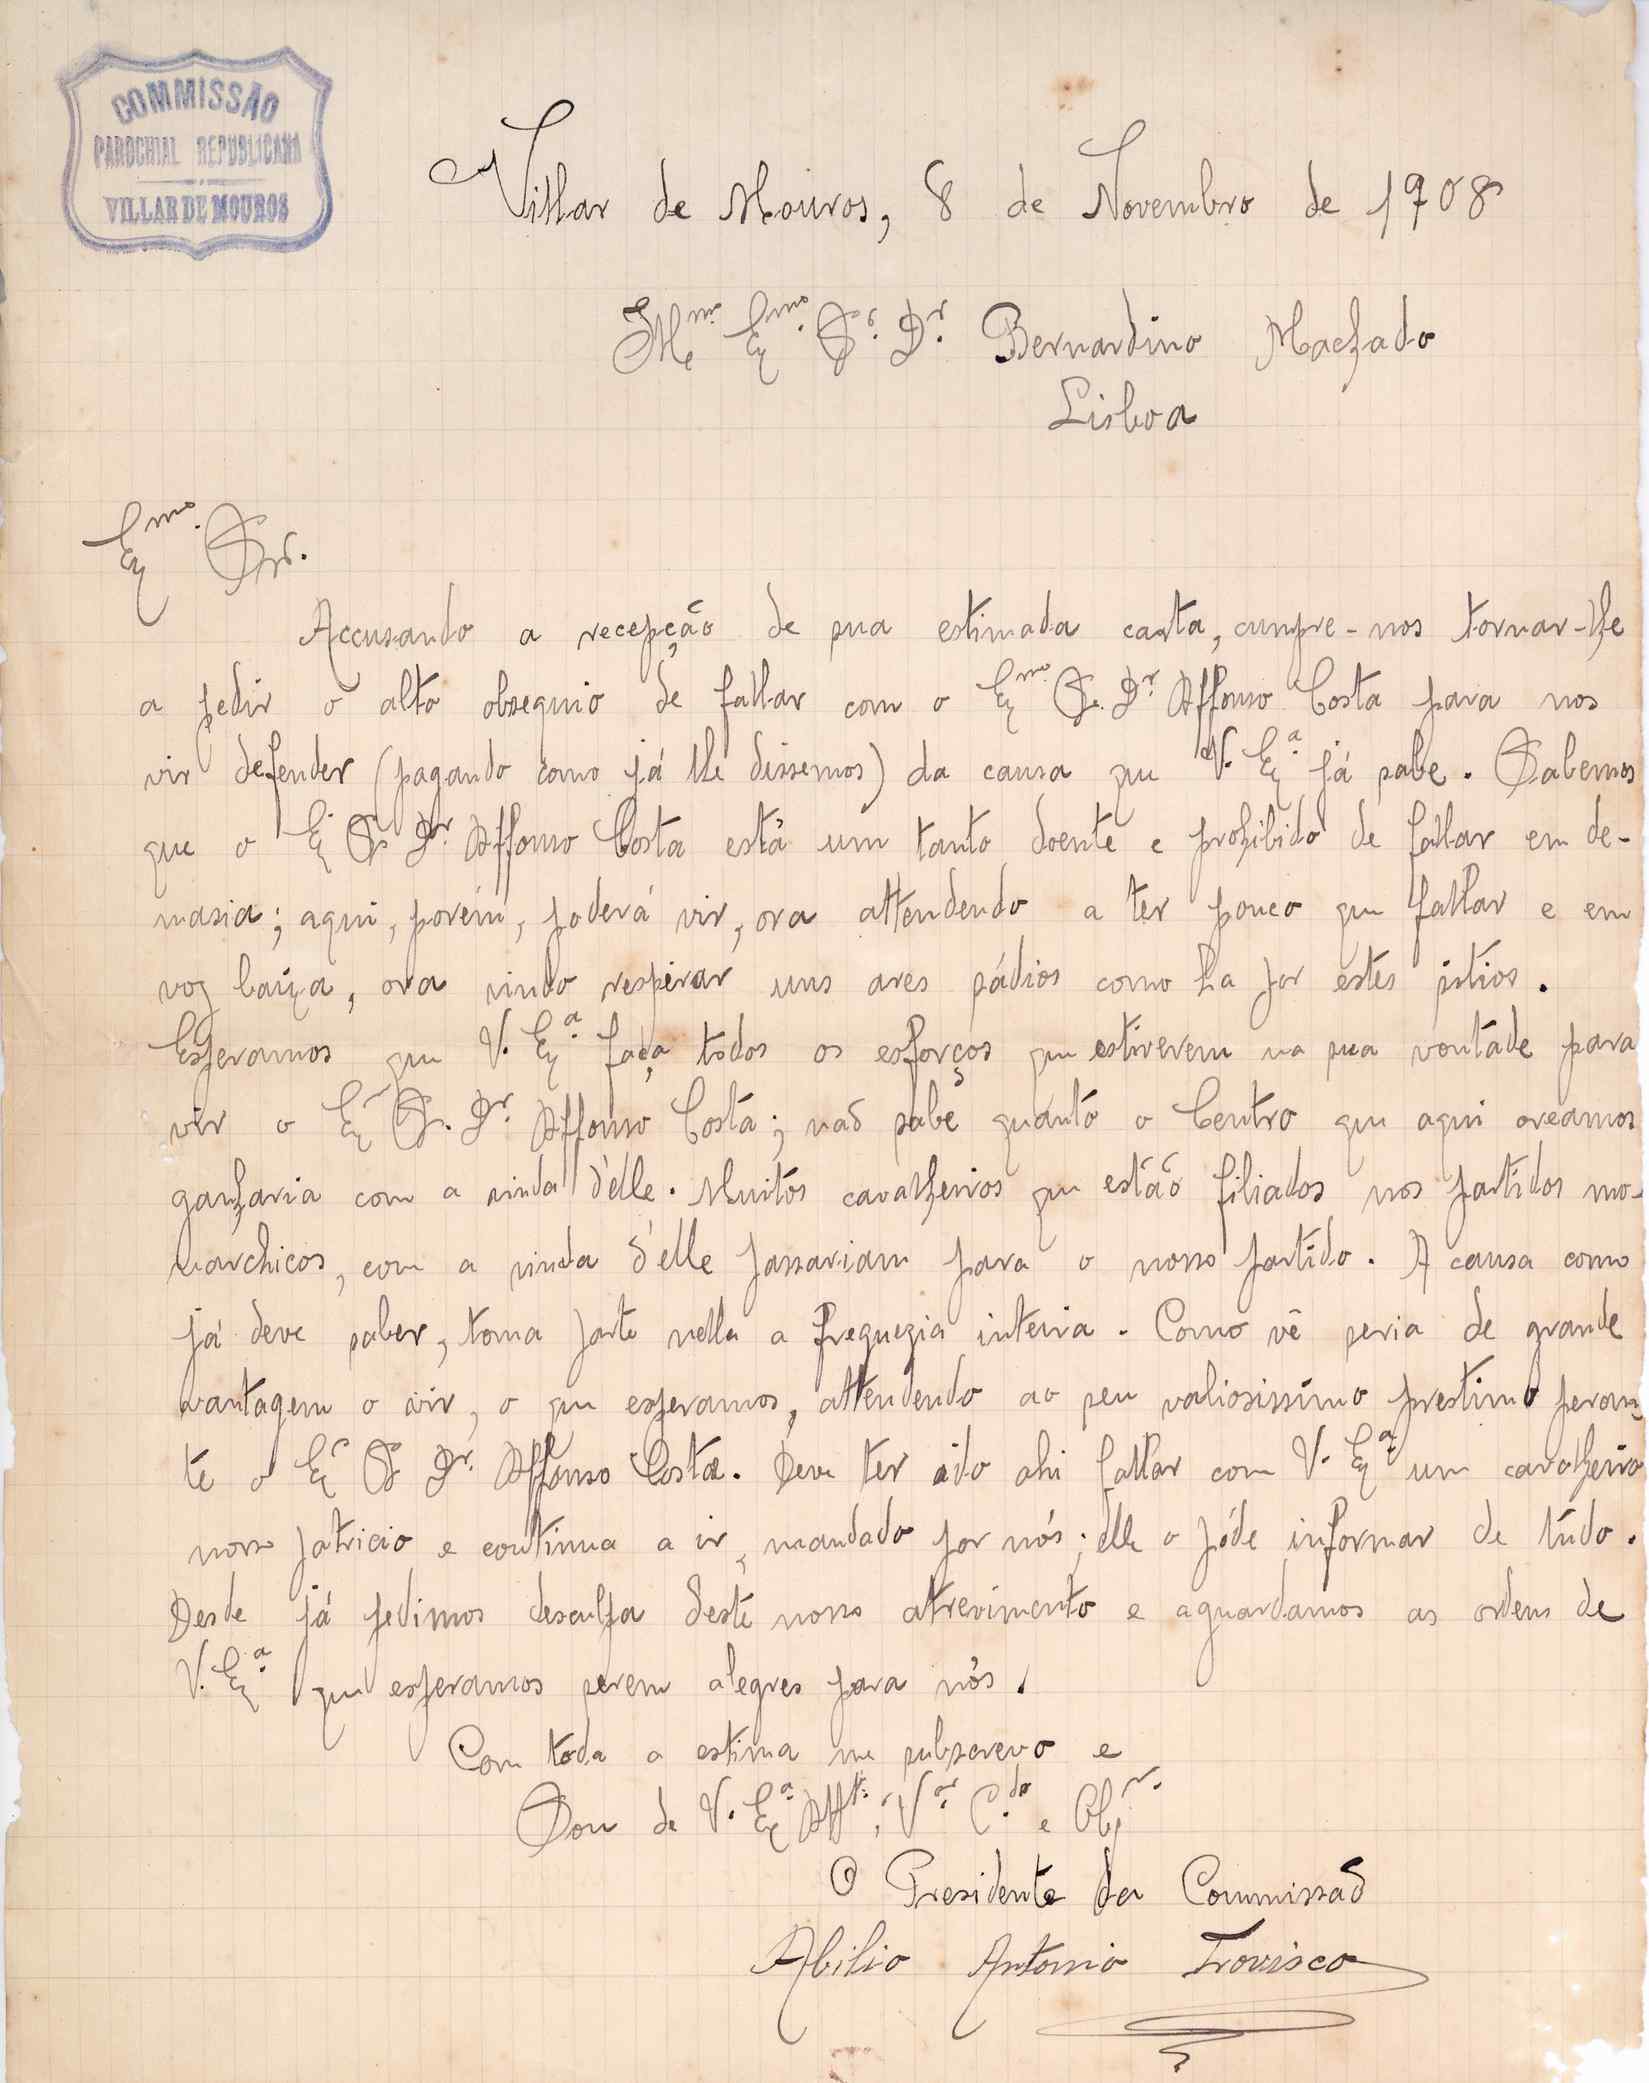 COMMISSÃO
PAROCHIAL REPUBLICANA
VILLAR DE MOUROS
Villar de Mouros, 8 de Novembro de 1908
Illmo Exmo. Sr. Dr. Bernardino Machado
Lisboa
Exmo. Snr.
Accusando a recepção de sua estimada carta, cumpre-nos tornar-lhe
a pedir o alto obsequio de fallar com o Exmo. Sr. Dr. Affonso Costa para nos
vir defender (pagando como já lhe dissemos) da causa que V. Exa. já sabe. Sabemos
que o Ex. Sr. Dr. Affonso Costa está um tanto doente e prohibido de fallar em de-
masia; aqui, porém, poderá vir, ora attendendo a ter pouco que fallar e em
voz baixa, ora vindo respirar uns ares sádios como ha por estes sitios.
Esperamos que V. Exa. faça todos os esforços que estiverem na sua vontade para
vir o Ex. Sr. Dr. Affonso Costa; não sabe quanto o Centro que aqui creamos
ganharia com a vinda d'elle. Muitos cavalheiros que estão filiados nos partidos mo-
narchicos, com a vinda d'elle passariam para o nosso partido. A causa como
já deve saber, toma parte nella a freguezia inteira. Como vê seria de grande
vantagem o vir, o que esperamos, attendendo ao seu valiosissimo prestimo peran-
te o Ex. Sr. Dr. Affonso Costa. Deve ter ido ahi fallar com V. Exa. um cavalheiro
nosso patricio e continua a ir, mandado por nós; elle o póde informar de tudo.
Desde já pedimos desculpa deste nosso atrevimento e aguardamos as ordens de
V. Exa. que esperamos serem alegres para nós.
Com toda a estima me subscrevo e
Sou de V. Exa. Atto., Vor. C.do e Obr.
O Presidente da Commissão
Abilio Antonio Trovisco